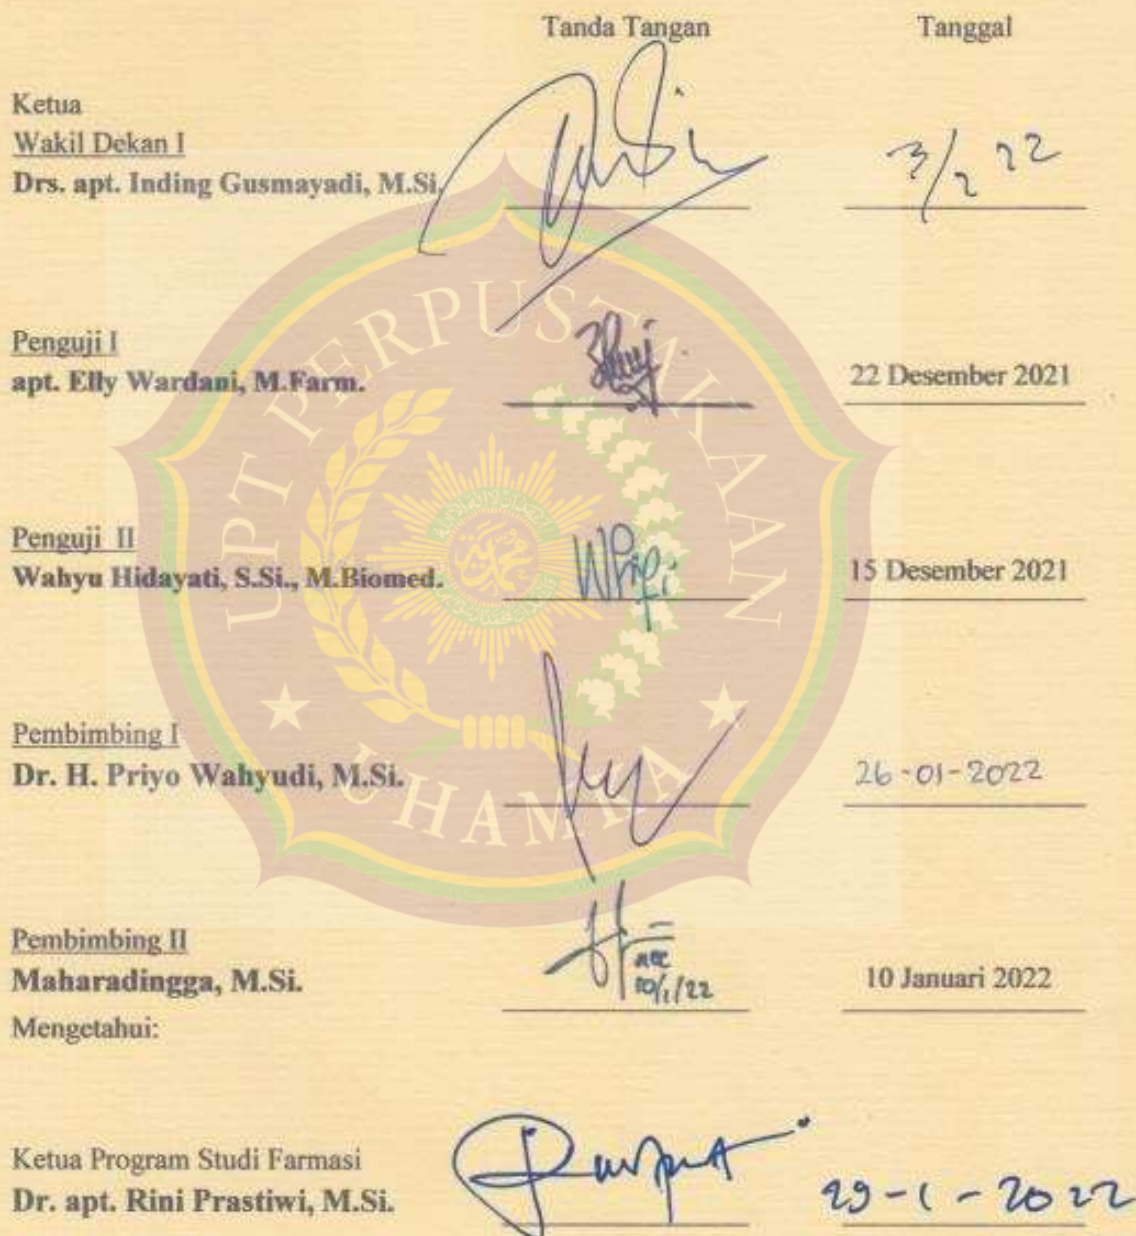 Tanda Tangan Tanggal
Ketua
Wakil Dekan I
Drs. apt. Inding Gusmayadi, M.Si.
3/2 22
Penguji I
apt. Elly Wardani, M.Farm.
22 Desember 2021
Penguji II
Wahyu Hidayati, S.Si., M.Biomed.
15 Desember 2021
Pembimbing I
Dr. H. Priyo Wahyudi, M.Si.
26-01-2022
Pembimbing II
acc
10/1/22
Maharadingga, M.Si.
10 Januari 2022
Mengetahui:
Ketua Program Studi Farmasi
Dr. apt. Rini Prastiwi, M.Si.
29-1-2022
UPT PERPUSTAKAAN
UHAMKA